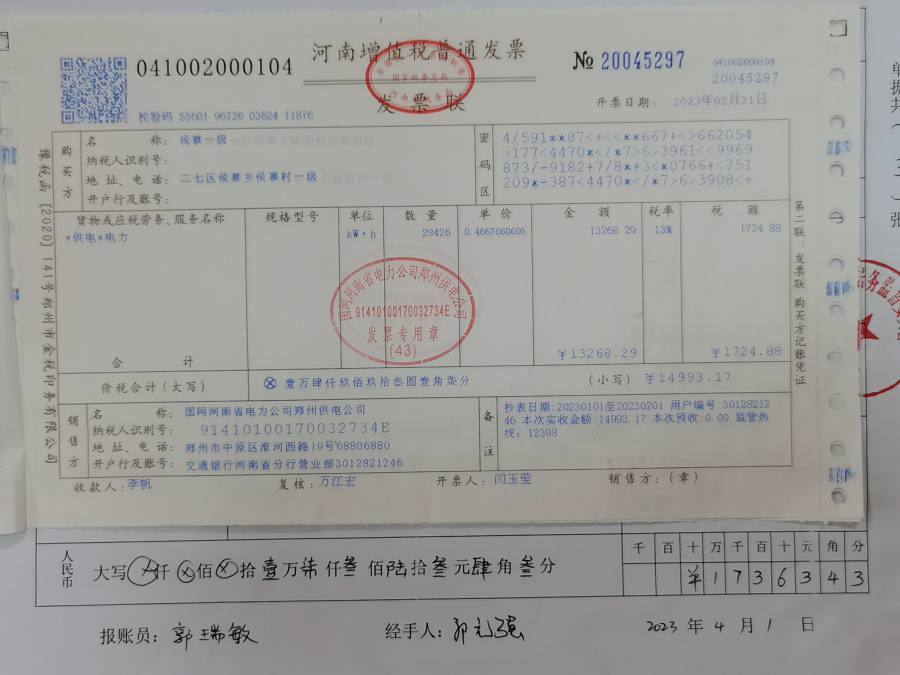 河南增值税普通发票
发票联
041002000104
№ 20045297
041002000104
20045297
校验码 55601 96726 03624 11876
开票日期: 2023年02月21日
购买方
名 称: 侯寨一级
纳税人识别号:
地址、电话: 二七区侯寨乡侯寨村一级
开户行及账号:
密码区
4/591**87<+<<**667+<>662054
>177<4470*</*7>6>3961<<9969
873/-9182+7/8*+3<*0766+<751
209*-387<4470*</*7>6>3908<+
货物或应税劳务、服务名称 规格型号 单位 数量 单价 金额 税率 税额
*供电*电力 kW·h 28426 0.4667660605 13268.29 13% 1724.88
国网河南省电力公司郑州供电公司
91410100170032734E
发票专用章
(43)
合计 ¥13268.29 ¥1724.88
价税合计(大写) ⊗ 壹万肆仟玖佰玖拾叁圆壹角柒分 (小写) ¥14993.17
销售方
名 称: 国网河南省电力公司郑州供电公司
纳税人识别号: 91410100170032734E
地址、电话: 郑州市中原区淮河西路19号68806880
开户行及账号: 交通银行河南省分行营业部3012821246
备注
抄表日期:20230101至20230201 用户编号:30128212
46 本次实收金额:14993.17 本次预收:0.00 监管热
线: 12398
收款人: 李帆 复核: 万江宏 开票人: 闫玉莹 销售方: (章)
豫税函〔2020〕141号郑州市金税印务有限公司
第二联:发票联 购买方记账凭证
人民币
大写 ⊗仟⊗佰⊗拾壹万柒仟叁佰陆拾叁元肆角叁分
千 百 十 万 千 百 十 元 角 分
¥ 1 7 3 6 3 4 3
报账员: 郭瑞敏 经手人: 2023 年 4 月 1 日